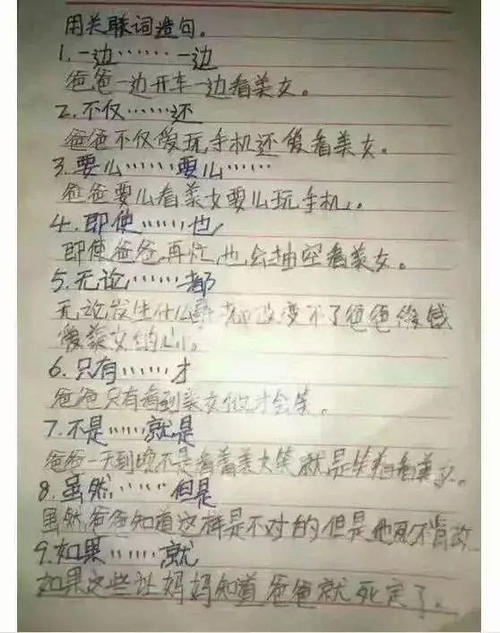 用关联词造句。
1.一边……一边
爸爸一边开车一边看美女。
2.不仅……还
爸爸不仅爱玩手机还爱看美女。
3.要么……要么……
爸爸要么看美女要么玩手机。
4.即使……也
即使爸爸再忙,也会抽空看美女。
5.无论……都
无论发生什么事都改变不了爸爸
爱美女的心。
6.只有……才
爸爸只有看到美女他才会笑。
7.不是……就是
爸爸一天到晚不是看着美女笑就是笑着看美女。
8.虽然……但是
虽然爸爸知道这样是不对的但是他就不肯改
9.如果……就
如果这些让妈妈知道爸爸就死定了。